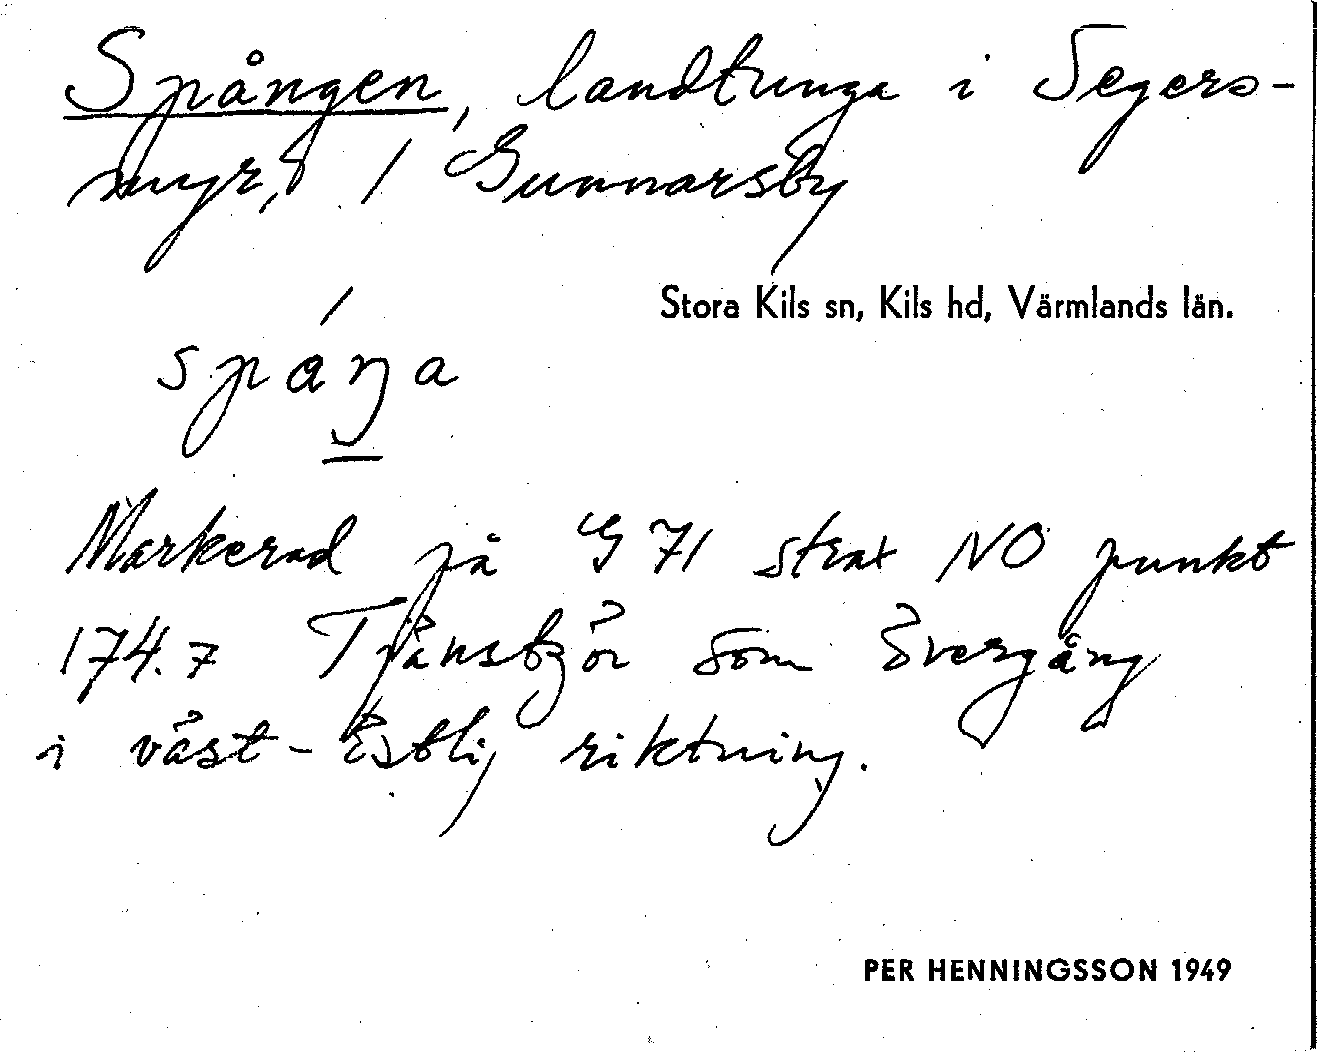 Spången, landtunga i Segers-
myr, / Gunnarsby
Stora Kils sn, Kils hd, Värmlands län.
spáŋa
Markerad på G 71 strax NO punkt
174.7 Tjänstgör som övergång
i väst-östlig riktning.
PER HENNINGSSON 1949